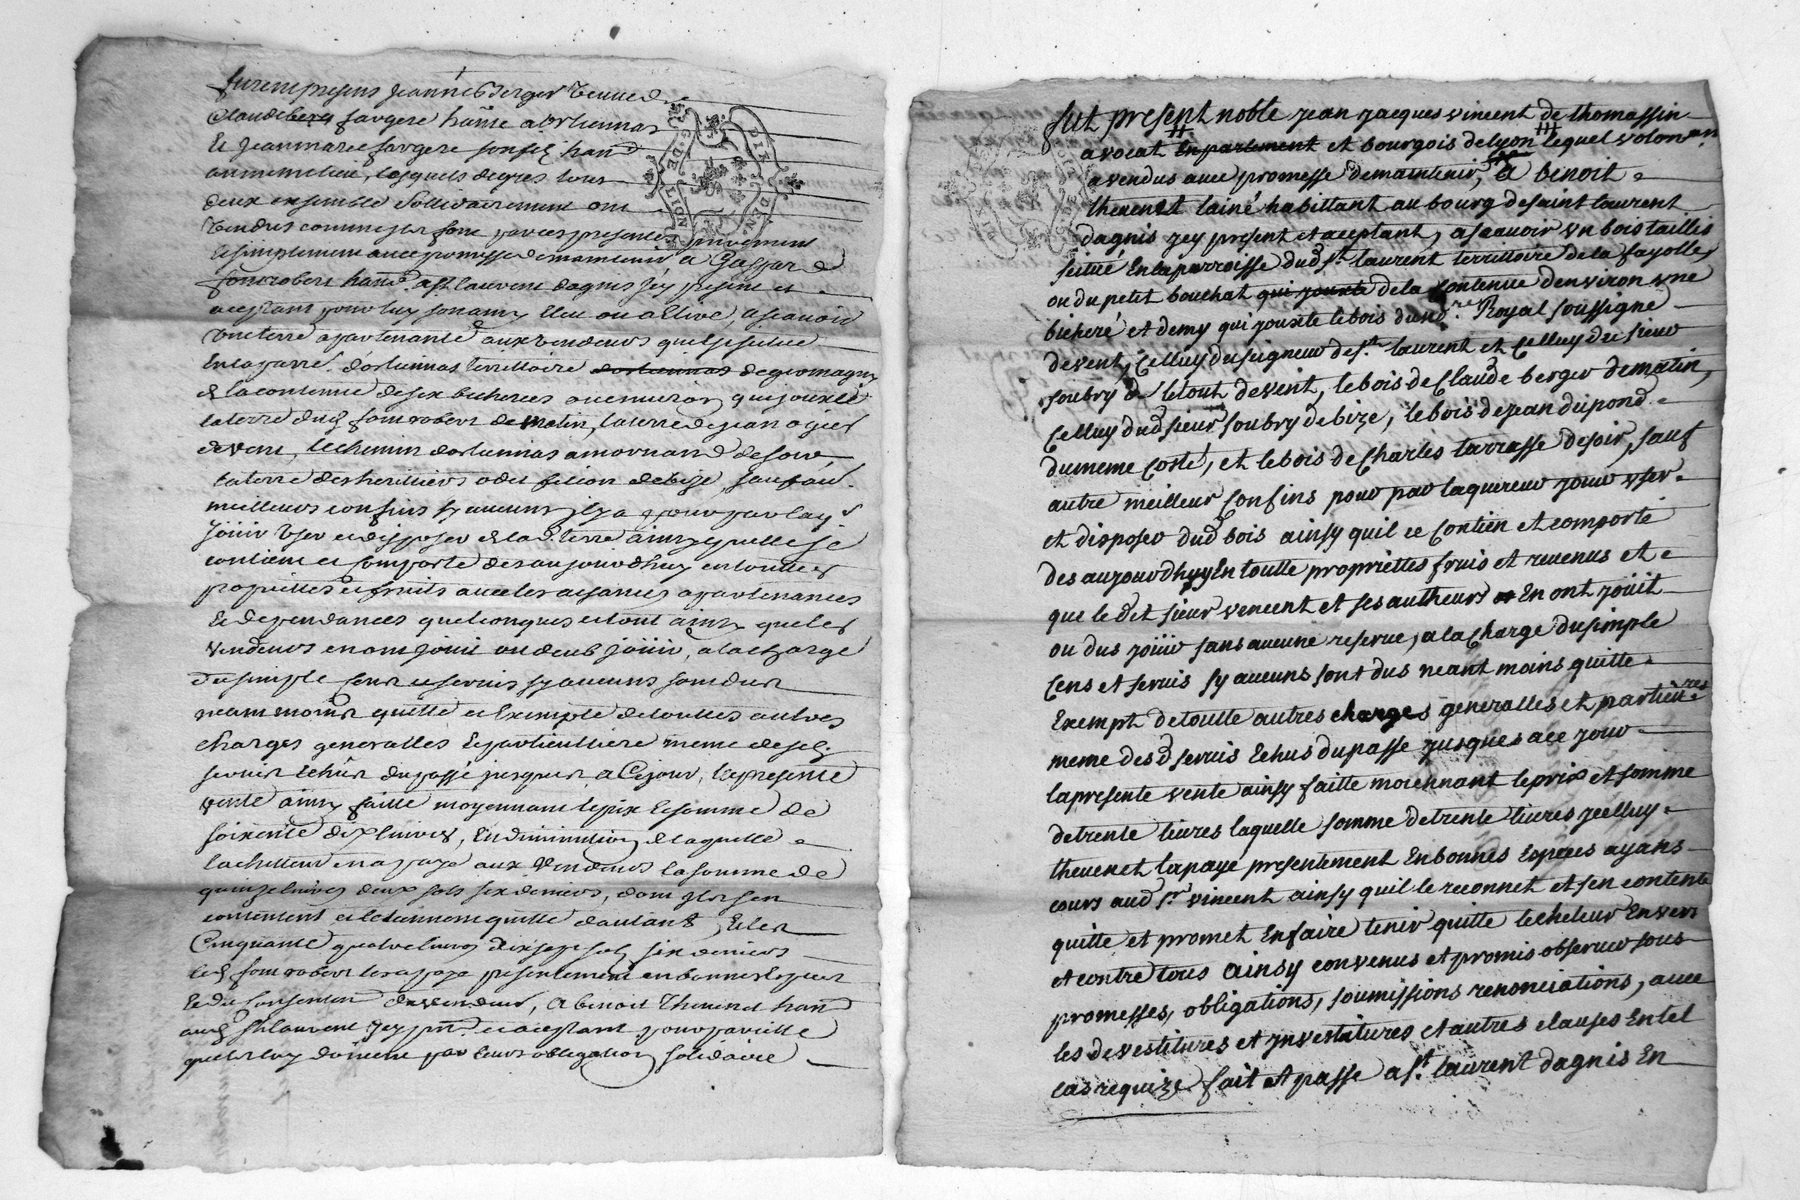 furent presens Jeanne Berger veuve de
Claude fargere
et Jeanmarie fargere son
lesquels de gres tous
deux ensemble sollidairement ont
vendus comme par ces presentes purement
et simplement avec promesse de maintenir a Gaspard
fontrobert st laurent dagnis icy present et
aceptant pour luy son amy elleu ou a elire, ascavoir
une terre apartenante aux vendeurs qu'il situe
territoire
de la contenue de six bicherees ou environ qui jouxte
la terre dud fontrobert de matin, la terre de jean ogier
de vent, le chemin a mornand de soir,
la terre des heritiers de bize, sauf
meilleurs confins sy aucuns il y a pour par
jouir user et disposer de lad terre ainsy quelle se
contient et comporte des aujourdhuy en touttes
proprietes et fruits avec les aisances apartenances
et dependances quelconques et tout ainsy que les
vendeurs en ont jouit ou deub jouir, a la charge
du simple cens et servis sy aucuns sont dus
neant moins quitte et exempte de touttes autres
charges generalles et particulliere meme desd
servis echus du passé jusques a ce jour, la presente
vente ainsy faitte moyennant le prix et somme de
soixente dix livres, en diminution de laquelle
lachetteur en a payé aux vendeurs la somme de
quinze livres deux sols six deniers, dont ils sen
contentent et le tiennent quitte dautant, et les
cinquante quatre livres dix sept sols six deniers
led fontrobert les a payé presentement en bonnes especes
et du consentement des vendeurs, a benoit thevenet
aud st laurent icy pnt et aceptant pour pareille
quels luy doivent par leurs obligation solidaire
fut present noble jean jacques vincent de thomassin
avocat en parlement et bourgois de lyon lequel volon
a vendus avec promesse demaintenir, a benoit
thevenet lainé habittant au bourg de saint laurent
dagnis jey present et aceptant, ascavoir un bois taillis
scitué en la parroisse dud st laurent territtoire de la fayolles
ou du petit bouchat qui jouxte de la contenue denviron une
bicheré et demy qui jouxte le bois dud Royal soussigné
de vent, celluy du seigneur de st laurent et celluy du sieur
soubry de le tout de vent, le bois de Claude berger de matin,
celluy dud sieur soubry de bize, le bois de jean dupond
du meme costé, et le bois de Charles terrasse de soir, sauf
autre meilleur confins pour par laquereur jouir user
et disposer dud bois ainsy quil ce contien et comporte
des aujourdhuy En toutte propriettes fruis et revenus et
que le dit sieur vincent et ses autheurs en ont jouit
ou dus jouir sans aucune reserve, a la charge du simple
cens et servis sy aucuns sont dus neant moins quitte
exempt de toutte autres charges generalles et particu res
meme desd servis echus du passe jusques a ce jour
la presente vente ainsy faitte moiennant le prix et somme
de trente livres laquelle somme de trente livres jcelluy
thevenet la payé presentement en bonnes espèces ayans
cours aud sr vincent ainsy quil le reconnet et sen contente
quitte et promet en faire tenir quitte lecheteur envers
et contre tous ainsy convenus et promis observer sous
promesses, obligations, soumissions renonciations, avec
les devestitures et jnvestitures et autres clauses en tel
cas requize fait et passé a st laurent dagnis en